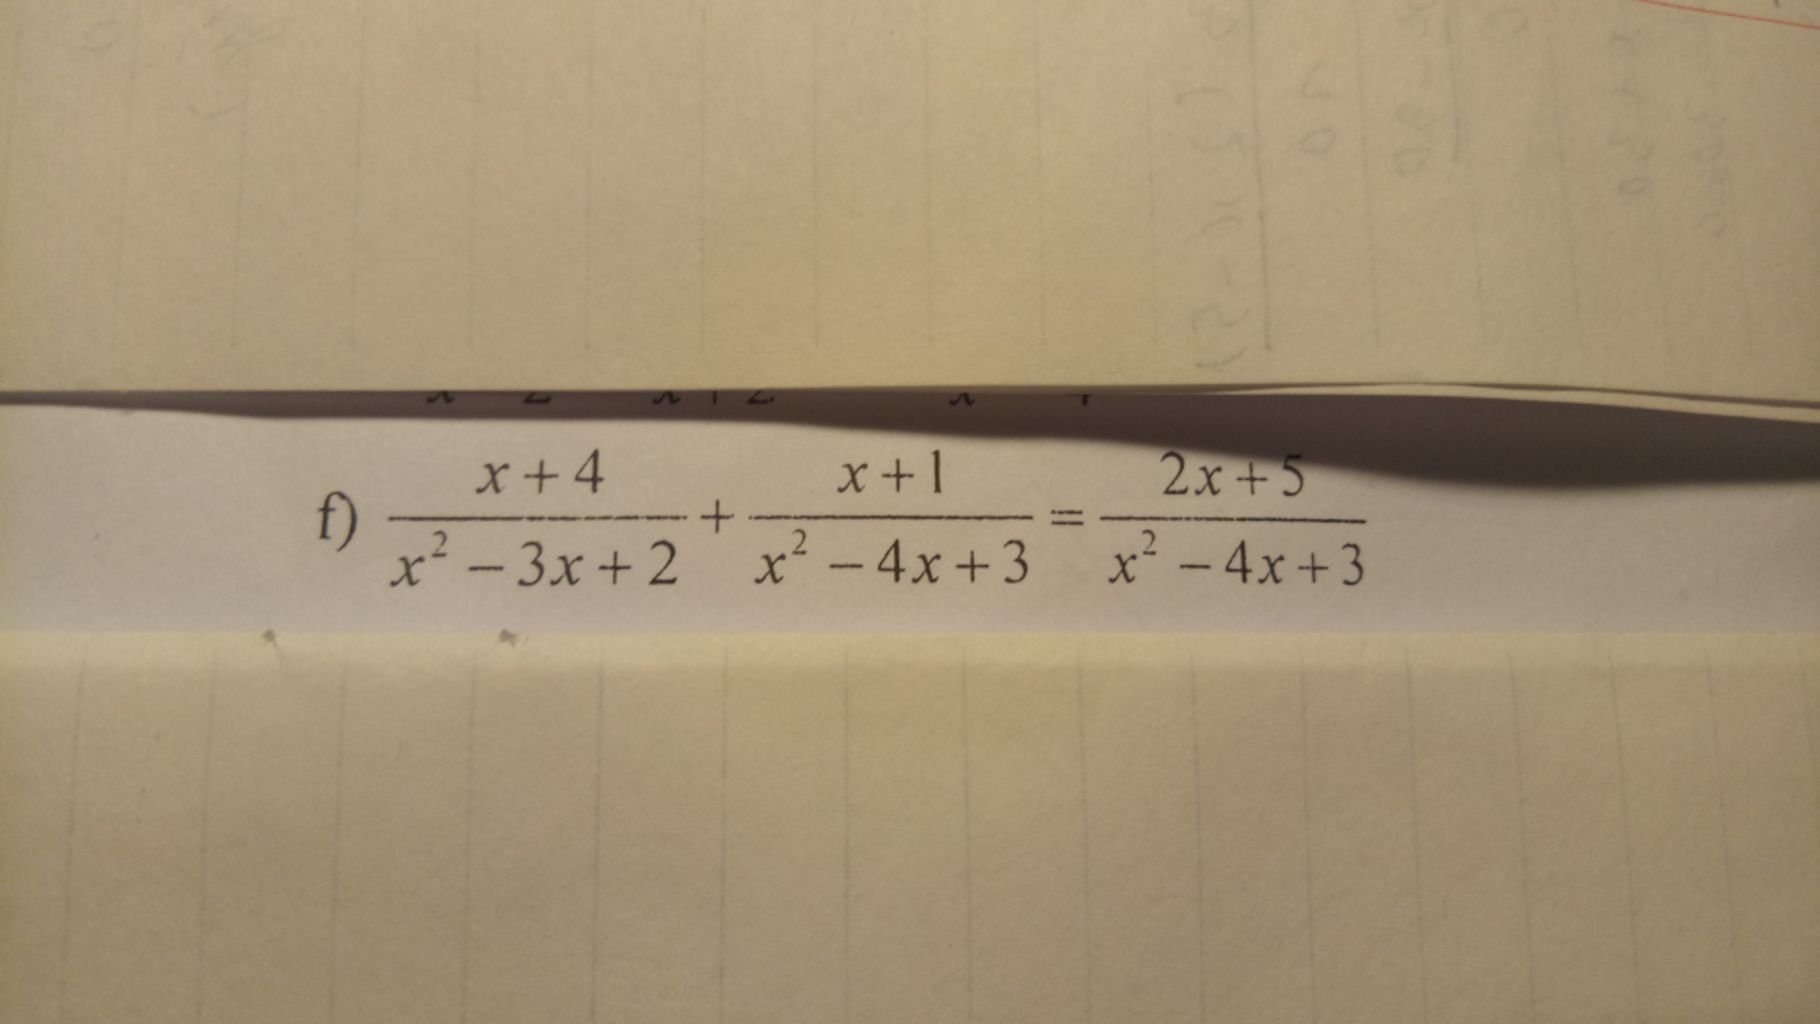 f) \frac{x+4}{x^2-3x+2} + \frac{x+1}{x^2-4x+3} = \frac{2x+5}{x^2-4x+3}